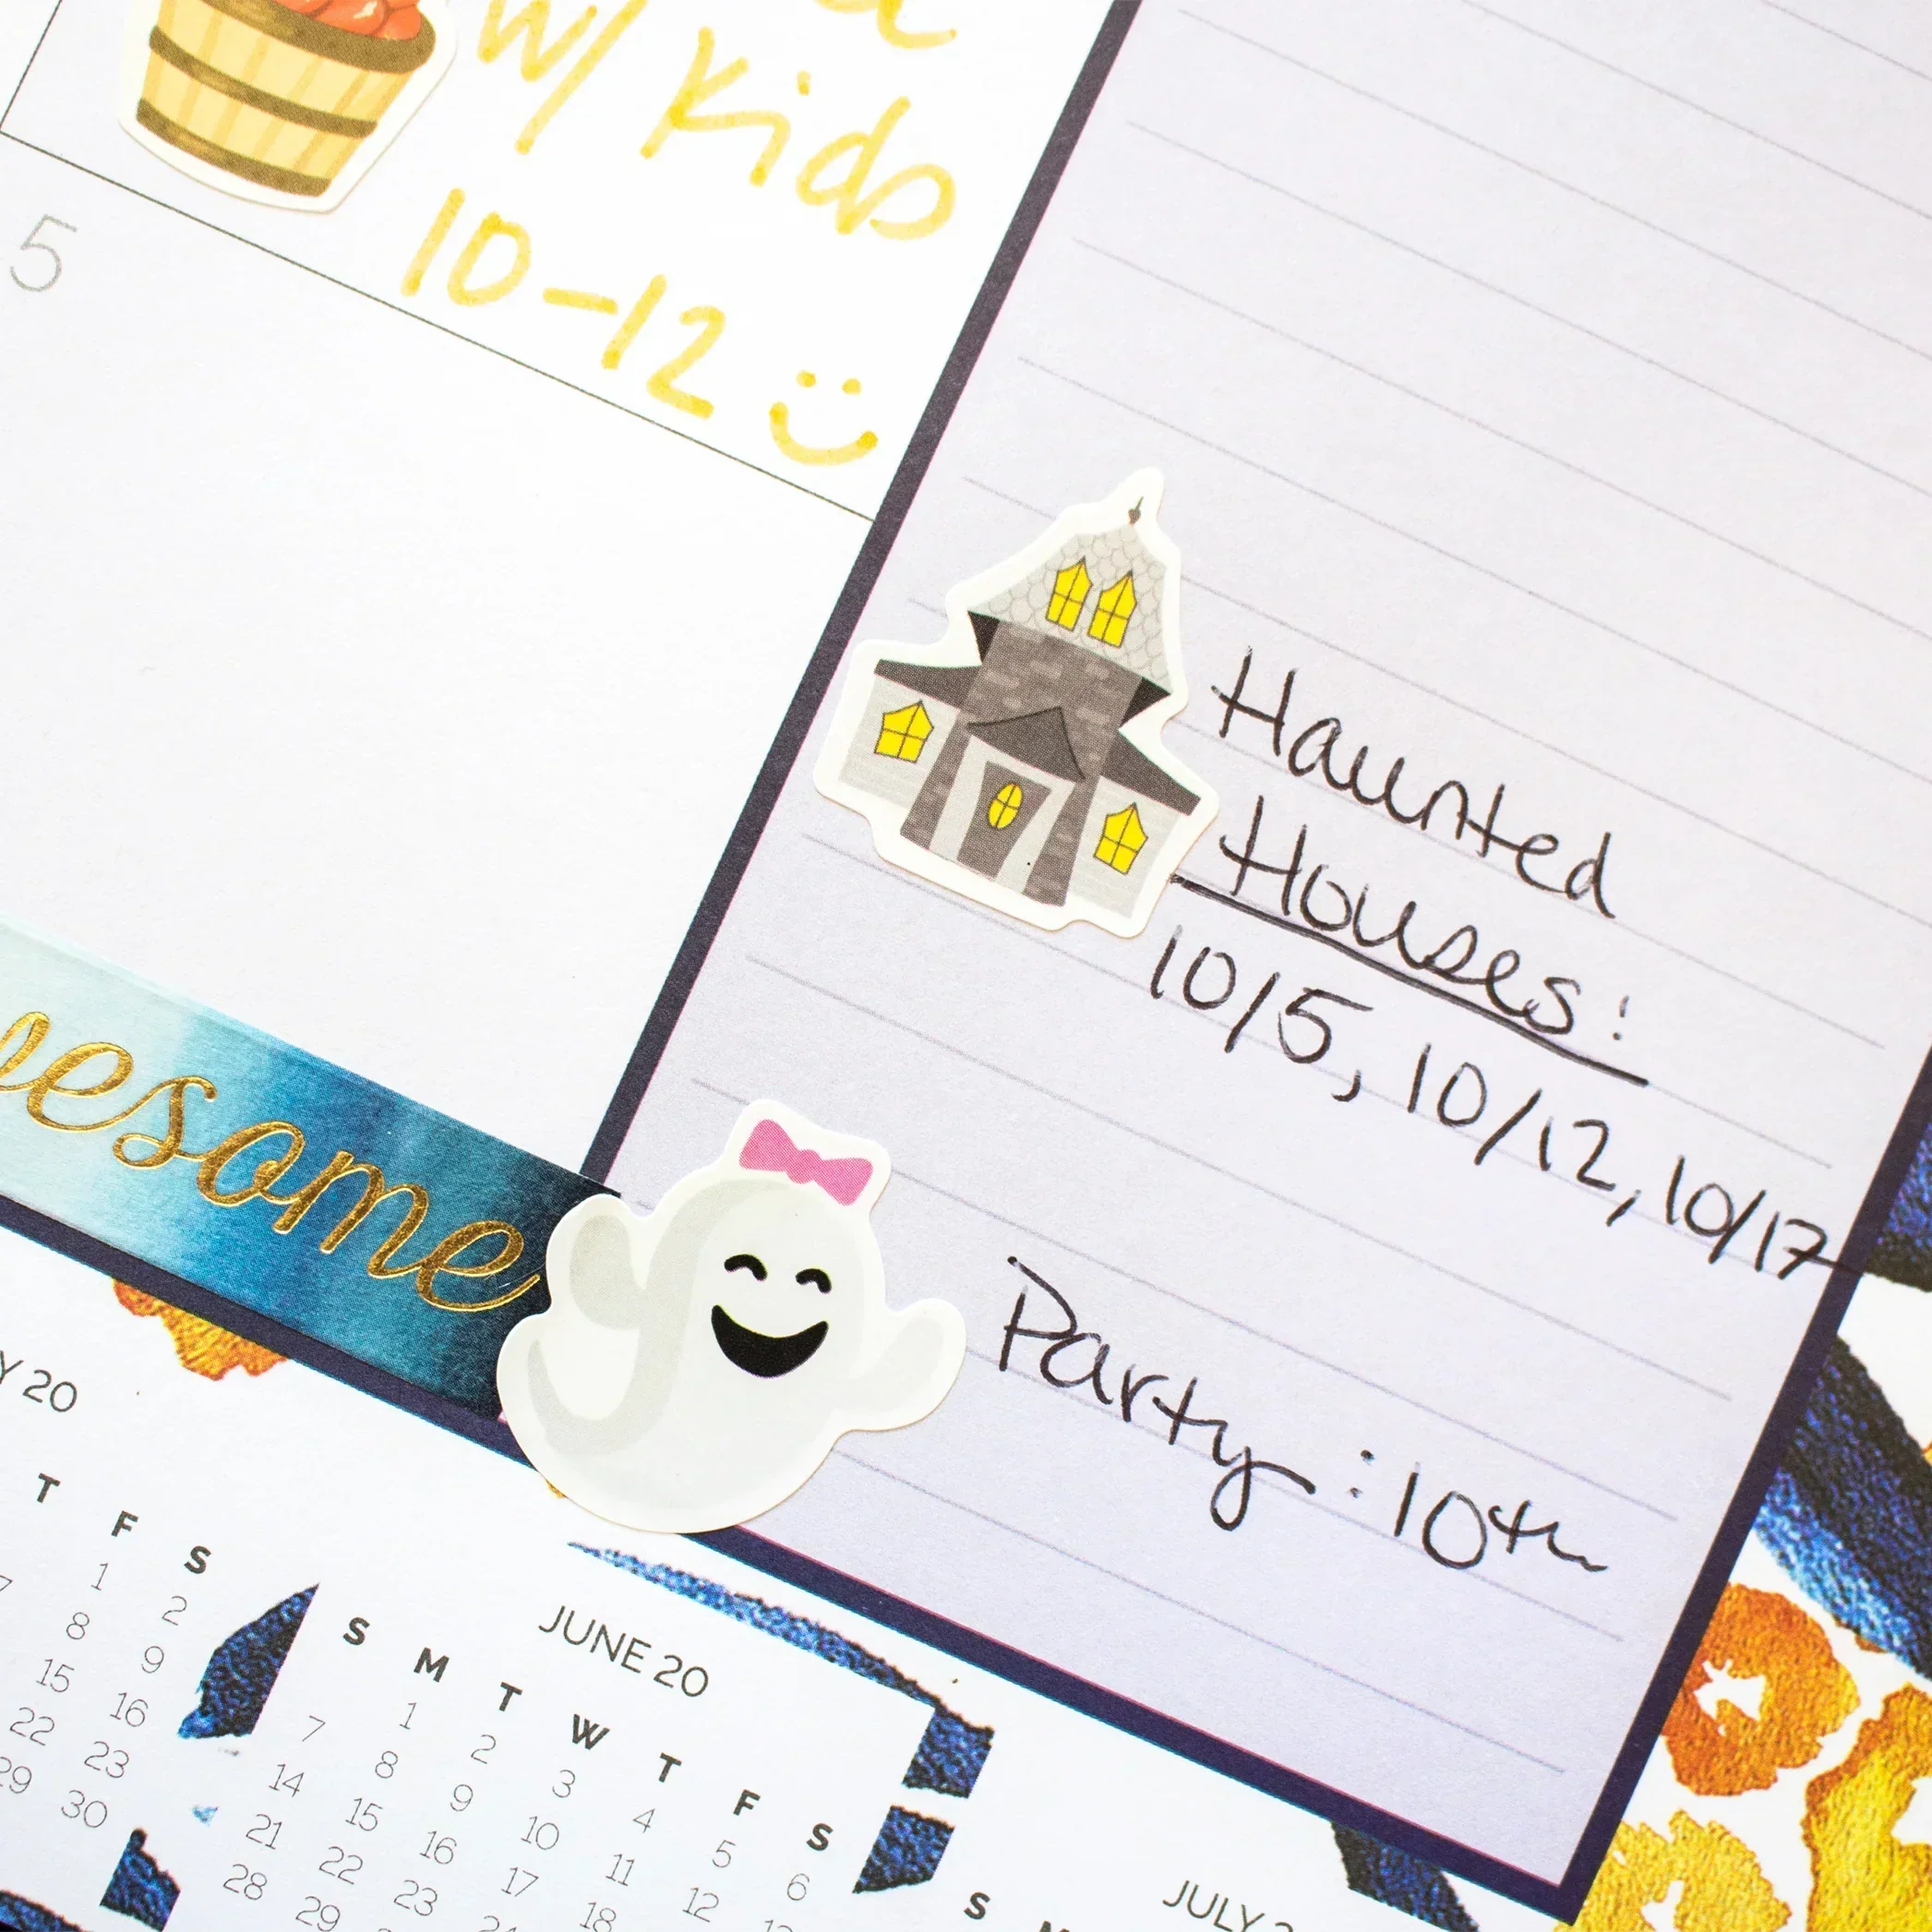 w/ Kids
10-12
5
Haunted
Houses:
10/5, 10/12, 10/17
Party: 10th
esome
Y 20
T F S
1 2
8 9
15 16
22 23
29 30
JUNE 20
S M T W T F S
1 2 3 4 5 6
7 8 9 10 11 12
14 15 16 17 18
21 22 23
28 29
JULY
S